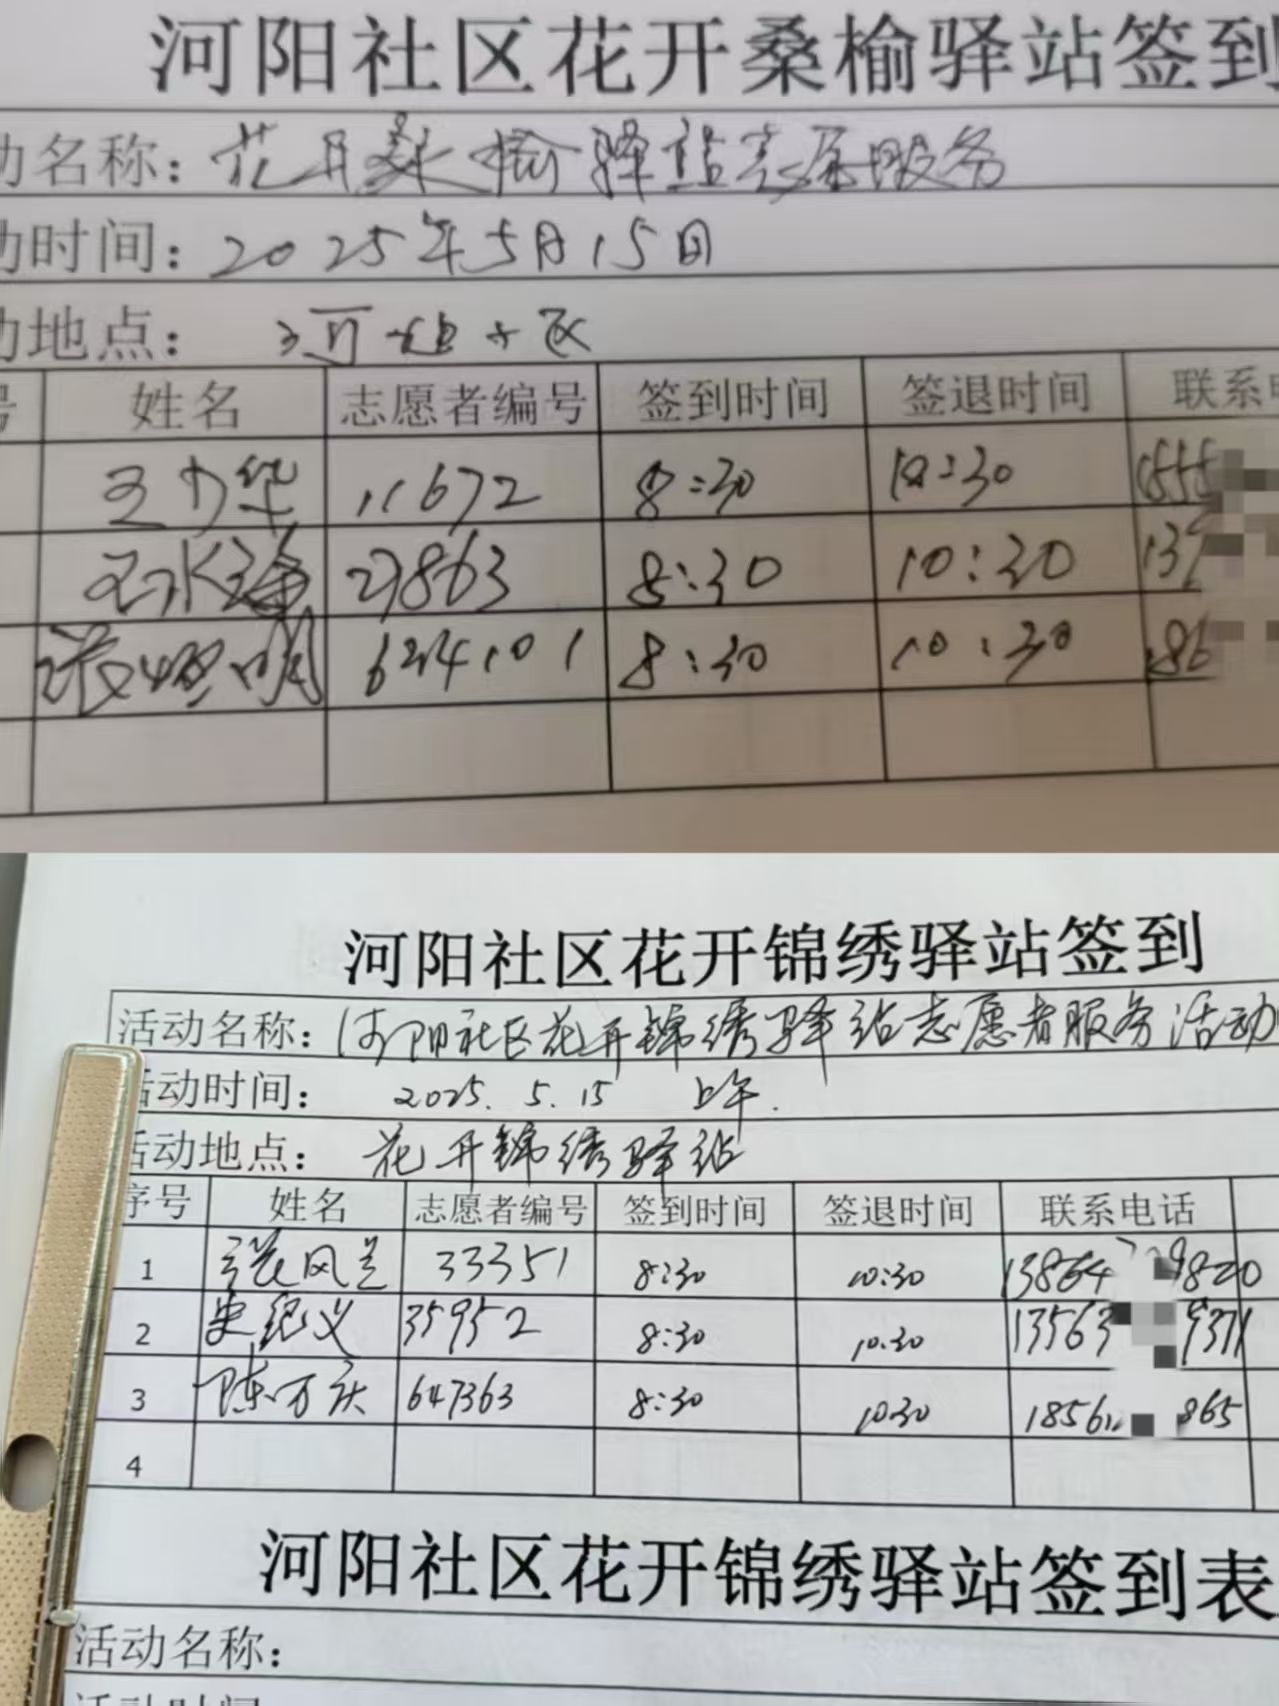 河阳社区花开桑榆驿站签到
动名称：花开桑榆驿站志愿服务
动时间：2025年5月15日
动地点：
号 姓名 志愿者编号 签到时间 签退时间 联系电
王力华 11672 8:30 10:30 1555
8:30 10:30 137
624101 8:30 10:30 186
河阳社区花开锦绣驿站签到
活动名称：河阳社区花开锦绣驿站志愿者服务活动
活动时间：2025.5.15 上午.
活动地点：花开锦绣驿站
序号 姓名 志愿者编号 签到时间 签退时间 联系电话
1 张风兰 33351 8:30 10:30 13864 9820
2 史纪义 35952 8:30 10:30 13563 9371
3 陈万庆 647363 8:30 10:30 1856 865
4
河阳社区花开锦绣驿站签到表
活动名称：
活动时间